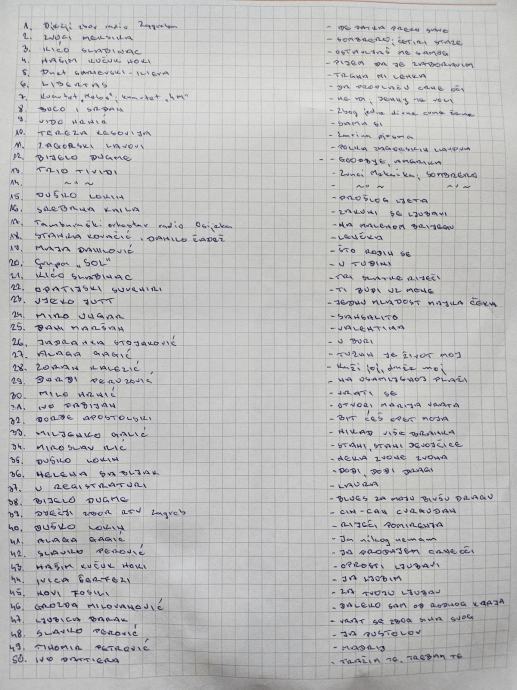 1. Dječji zbor radio Zagreba - DE BAIKA PREKO SVIJE
2. ZVUCI MEKSIKA - SOMBRERO, ČETIRI STAZE
3. KIĆO SLABINAC - OSTAVLJAŠ ME SAMOG
4. HAŠIM KUČUK HOKI - PIJEM DA JE ZABORAVIM
5. Duet - TUGUJ MI LENKA
6. LIBERTAS - JA PRODAJEM CRNE OČI
7. Kvartet "Melos", kvartet "4M" - NE NE, JEHUJ NE VOLI
8. BUCO I SRĐAN - Zbog jedne divne crne žene
9. VIDO HRNIĆ - DAMA BI
10. TEREZA KESOVIJA - pjesma
11. ZAGORSKI LAVOVI - POLKA ZAGORSKIH LAVOVA
12. BIJELO DUGME - GOODBYE, AMERIKA
13. TRIO TIVIDI - Zvuci Meksika, SOMBRERO
14. ~ II ~ - ~ II ~ ~ II ~
15. DUŠKO LOKIN - PROŠLOG LJETA
16. SREBRNA KRILA - ZAKUNI SE LJUBAVI
17. Tamburaški orkestar radio Osijeka - NA MALENOM BRIJEGU
18. STANKA KOVAČIĆ, DANILO ČADEŽ - LENČKA
19. MAJA DANILOVIĆ - ŠTO RODIH SE
20. Grupa "SOL" - U TUĐINI
21. KIĆO SLABINAC - TRI SLATKE RIJEČI
22. OPATIJSKI SUVENIRI - TI BUDI UZ MENE
23. VJEKO JUTT - JEDNU MLADOST MAJKA ČEKA
24. MIRO UNGAR - SAUSALITO
25. DANI MARŠAN - VALENTINA
26. JADRANKA STOJAKOVIĆ - U BURI
27. ALAGA GAGIĆ - TUŽAN JE ŽIVOT MOJ
28. ZORAN KALEZIĆ - Kaži joj, druže moj
29. ĐORĐI PERUZOVIĆ - NA USAMLJENOJ PLAŽI
30. MILO HRNIĆ - VRATI SE
31. IVO FABIJAN - OTVORI MARIJA VRATA
32. ĐORĐE APOSTOLSKI - BIT ĆEŠ OPET MOJA
33. MILJENKO GALIĆ - NIKAD VIŠE BRANKA
34. MIROSLAV ILIĆ - STANI, STANI DEVOJČICE
35. DUŠKO LOKIN - NEKA ZVONE ZVONA
36. HELENA SABLJAK - DOĐI, DOĐI DRAGI
37. U REGISTRATURI - LAURA
38. BIJELO DUGME - BLUES ZA MOJU BIVŠU DRAGU
39. DJEČJI ZBOR RTV Zagreb - CIN-CAN CVRGUDAN
40. DUŠKO LOKIN - RIJEČI POMIRENJA
41. ALAGA GAGIĆ - Jer nikog nemam
42. SLAVKO PEROVIĆ - JA PRODAJEM CRNE OČI
43. HAŠIM KUČUK HOKI - OPROSTI LJUBAVI
44. IVICA ŠERFEZI - JA LJUBIM
45. NOVI FOSILI - ZA TVOJU LJUBAV
46. GROZDA MILOVANOVIĆ - DALEKO SAM OD RODNOG KRAJA
47. LJUBICA BARAK - VRATI SE ZBOG SINA SVOG
48. SLAVKO PEROVIĆ - JA PUSTOLOV
49. TIHOMIR PETROVIĆ - MADRID
50. IVO PATTIERA - TRAŽIM TE, TREBAM TE